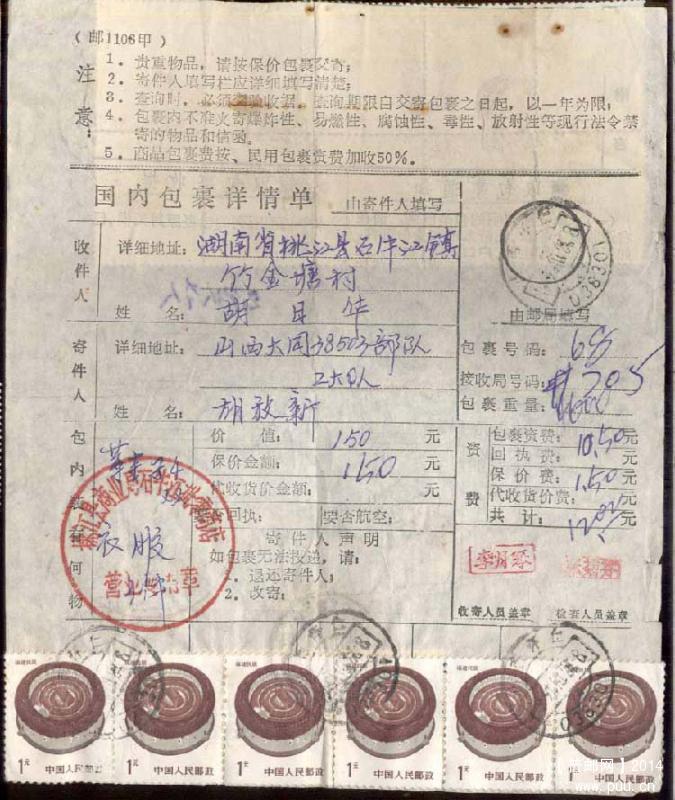 （邮1106甲）
注意：
1．贵重物品，请按保价包裹交寄；
2．寄件人填写栏应详细填写清楚；
3．查询时，必须交验收据。查询期限自交寄包裹之日起，以一年为限；
4．包裹内不准夹寄爆炸性、易燃性、腐蚀性、毒性、放射性等现行法令禁
寄的物品和信函。
5．商品包裹费按、民用包裹资费加收50%。
国内包裹详情单
由寄件人填写
收件人
详细地址：湖南省桃江县石牛江镇
竹金塘村
姓名：胡月华
由邮局填写
寄件人
详细地址：山西大同38503部队
2大队
姓名：胡放新
包裹号码：65
接收局号码：#705
包裹重量：
包内装有何物
衣服
价值：150元
保价金额：150元
代收货价金额：元
要否回执：
要否航空：
寄件人声明
如包裹无法投递，请：
1．退还寄件人；
2．改寄：
资费
包裹资费：10.50元
回执费：元
保价费：1.50元
代收货价费：元
共计：12.00元
收寄人员盖章
检查人员盖章
营业
章
038301
福建民居
1元
中国人民邮政
福建民居
1元
中国人民邮政
福建民居
1元
中国人民邮政
福建民居
1元
中国人民邮政
福建民居
1元
中国人民邮政
1元
中国人民邮政
2014
www.puu.cn